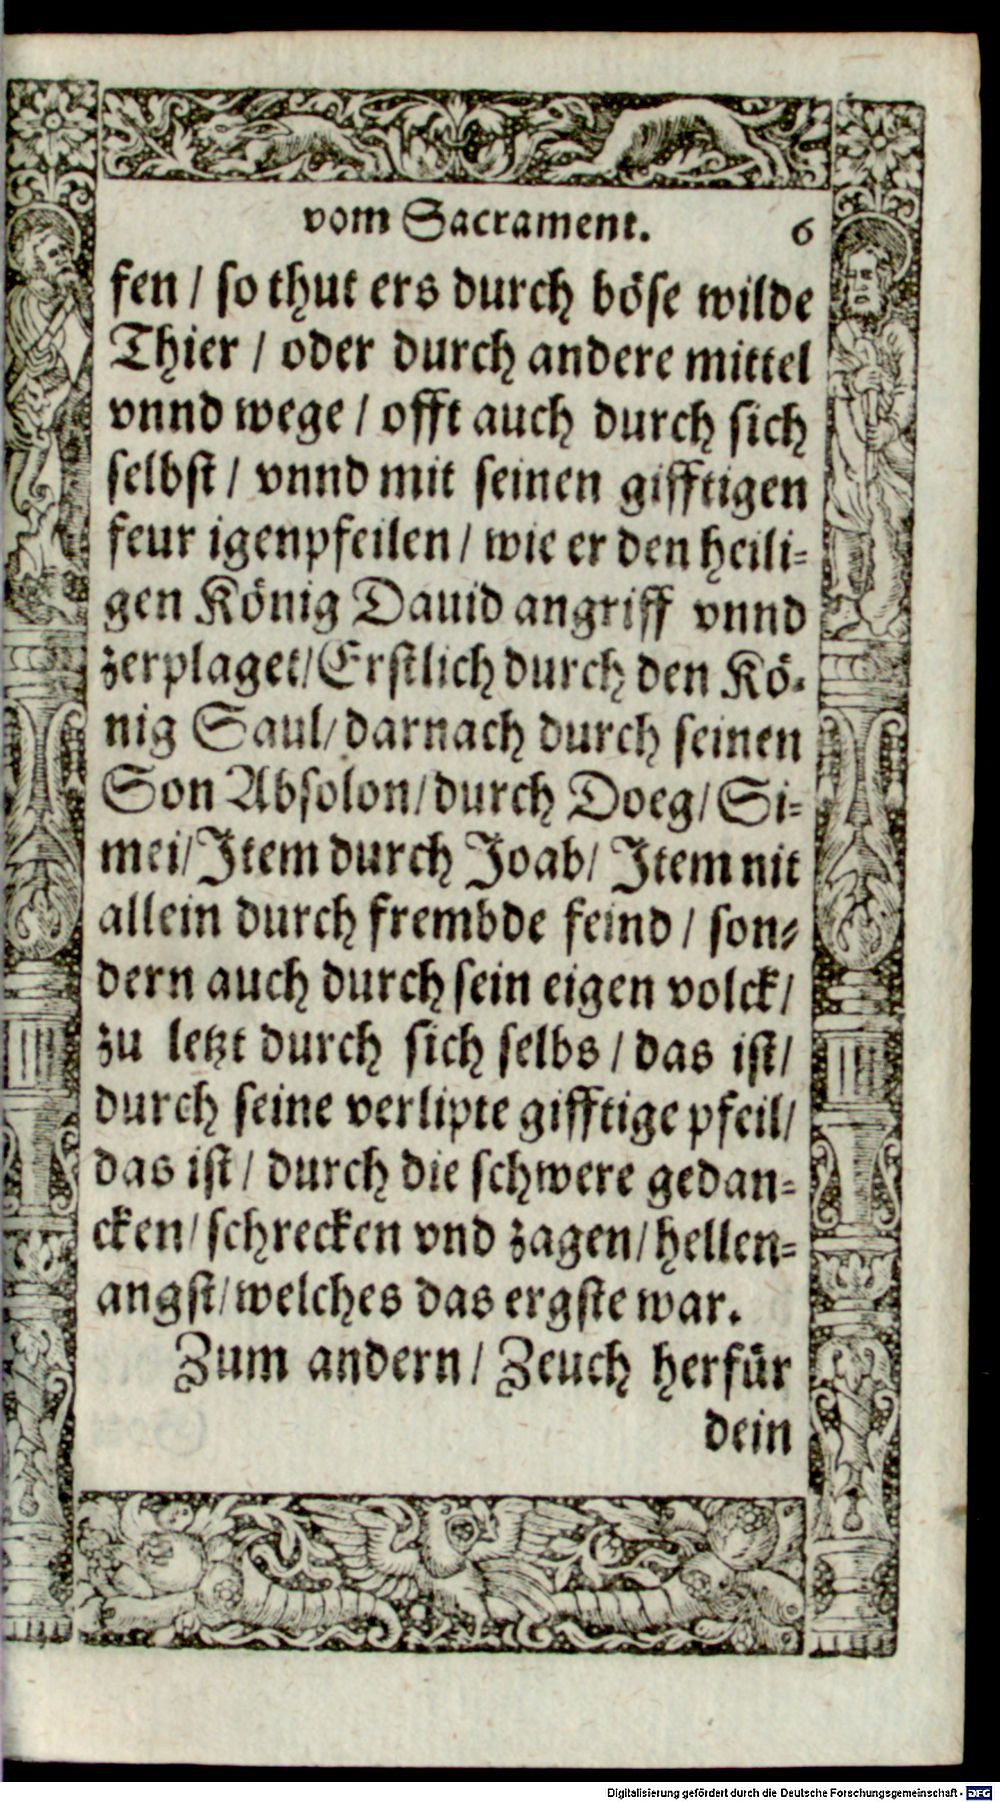 vom Sacrament. 6
fen / so thut ers durch böse wilde
Thier / oder durch andere mittel
vnnd wege / offt auch durch sich
selbst / vnnd mit seinen gifftigen
feur igenpfeilen / wie er den heili-
gen König Dauid angriff vnnd
zerplaget/ Erstlich durch den Kö-
nig Saul/ darnach durch seinen
Son Absolon/ durch Doeg/ Si-
mei/ Item durch Joab/ Item nit
allein durch frembde feind / son-
dern auch durch sein eigen volck/
zu letzt durch sich selbs / das ist/
durch seine verlipte gifftige pfeil/
das ist / durch die schwere gedan-
cken/ schrecken vnd zagen/ hellen-
angst/ welches das ergste war.
Zum andern / Zeuch herfür
dein
Digitalisierung gefördert durch die Deutsche Forschungsgemeinschaft - DFG